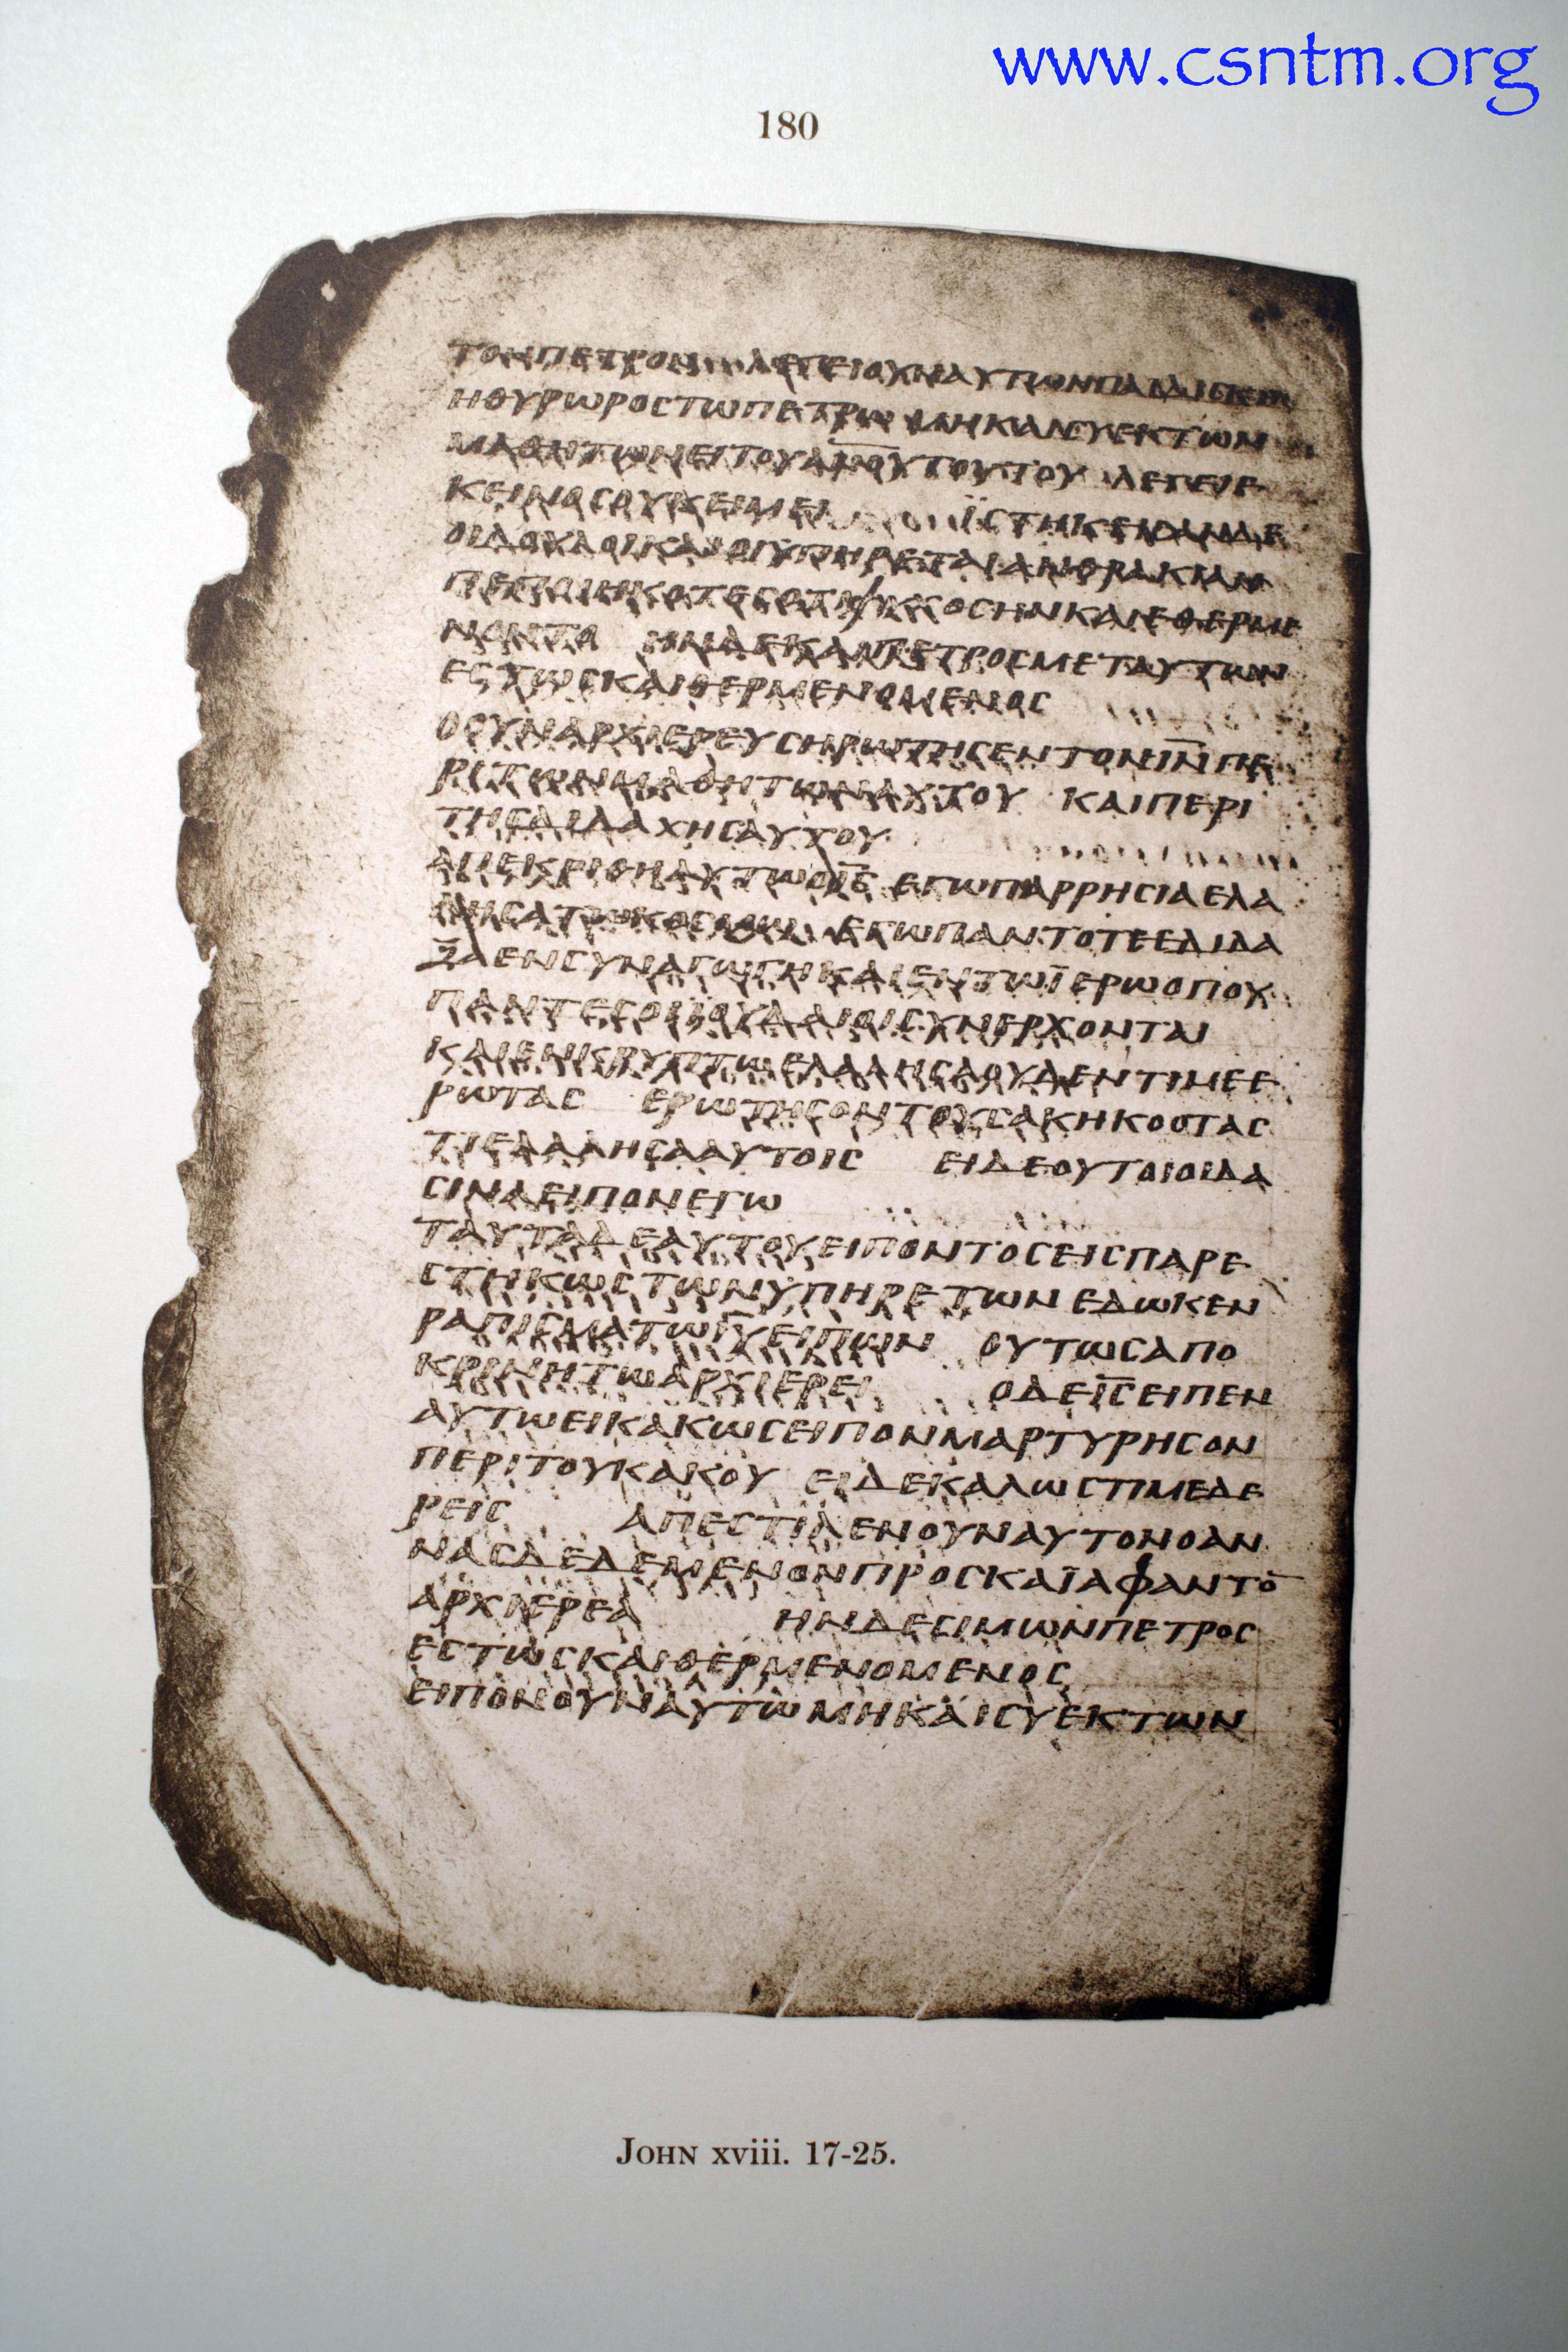 www.csntm.org
180
ΤΟΝΠΕΤΡΟΝ ΛΕΓΕΙΟΥΝΑΥΤΩΝΠΑΙΔΙΣΚΗ
ΗΘΥΡΩΡΟϹΤΩΠΕΤΡΩ ΜΗΚΑΙϹΥΕΚΤΩΝ
ΜΑΘΗΤΩΝΕΙΤΟΥΑΝ̅Ο̅Υ̅ΤΟΥΤΟΥ ΛΕΓΕΙΕ
ΚΕΙΝΟϹΟΥΚΕΙΜΕΙ ΪϹΤΗΚΕΙϹΑΝΔΕ
ΟΙΔΟΥΛΟΙΚΑΙΟΙΥΠΗΡΕΤΑΙΑΝΘΡΑΚΙΑΝ
ΠΕΠΟΙΗΚΟΤΕϹΟΤΙΨΥΧΟϹΗΝΚΑΙΕΘΕΡΜΕ
ΝΟΝΤΟ ΗΝΔΕΚΑΙΠΕΤΡΟϹΜΕΤΑΥΤΩΝ
ΕϹΤΩϹΚΑΙΘΕΡΜΕΝΟΜΕΝΟϹ
ΟΟΥΝΑΡΧΙΕΡΕΥϹΗΡΩΤΗϹΕΝΤΟΝΙ̅Ν̅ΠΕ
ΡΙΤΩΝΜΑΘΗΤΩΝΑΥΤΟΥ ΚΑΙΠΕΡΙ
ΤΗϹΔΙΔΑΧΗϹΑΥΤΟΥ
ΑΠΕΚΡΙΘΗΑΥΤΩΟΙ̅Ϲ̅ ΕΓΩΠΑΡΡΗϹΙΑΕΛΑ
ΛΗϹΑΤΩΚΟϹΜΩ ΕΓΩΠΑΝΤΟΤΕΕΔΙΔΑ
ΞΑΕΝϹΥΝΑΓΩΓΗΚΑΙΕΝΤΩΪΕΡΩΟΠΟΥ
ΠΑΝΤΕϹΟΙΪΟΥΔΑΙΟΙϹΥΝΕΡΧΟΝΤΑΙ
ΚΑΙΕΝΚΡΥΠΤΩΕΛΑΛΗϹΑΟΥΔΕΝΤΙΜΕΕ
ΡΩΤΑϹ ΕΡΩΤΗϹΟΝΤΟΥϹΑΚΗΚΟΟΤΑϹ
ΤΙΕΛΑΛΗϹΑΑΥΤΟΙϹ ΕΙΔΕΟΥΤΟΙΟΙΔΑ
ϹΙΝΑΕΙΠΟΝΕΓΩ
ΤΑΥΤΑΔΕΑΥΤΟΥΕΙΠΟΝΤΟϹΕΙϹΠΑΡΕ
ϹΤΗΚΩϹΤΩΝΥΠΗΡΕΤΩΝΕΔΩΚΕΝ
ΡΑΠΙϹΜΑΤΩΙ̅Υ̅ΕΙΠΩΝ ΟΥΤΩϹΑΠΟ
ΚΡΙΝΗΤΩΑΡΧΙΕΡΕΙ ΟΔΕΙ̅Ϲ̅ΕΙΠΕΝ
ΑΥΤΩΕΙΚΑΚΩϹΕΙΠΟΝΜΑΡΤΥΡΗϹΟΝ
ΠΕΡΙΤΟΥΚΑΚΟΥ ΕΙΔΕΚΑΛΩϹΤΙΜΕΔΕ
ΡΕΙϹ ΑΠΕϹΤΙΛΕΝΟΥΝΑΥΤΟΝΟΑΝ
ΝΑϹΔΕΔΕΜΕΝΟΝΠΡΟϹΚΑΪΑΦΑΝΤΟ̅
ΑΡΧΙΕΡΕΑ ΗΝΔΕϹΙΜΩΝΠΕΤΡΟϹ
ΕϹΤΩϹΚΑΙΘΕΡΜΕΝΟΜΕΝΟϹ
ΕΙΠΟΝΟΥΝΑΥΤΩΜΗΚΑΙϹΥΕΚΤΩΝ
JOHN xviii. 17-25.